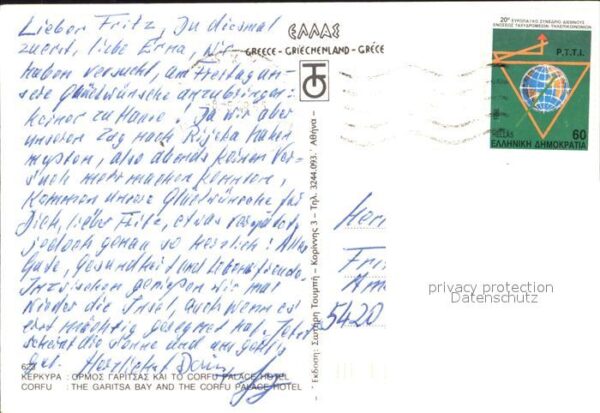 Lieber Fritz, Du diesmal
zuerst, liebe Erna, Wir
haben versucht, am Freitag un-
sere Glückwünsche anzubringen:
keiner zu Hause! Da wir aber
unseren Zug nach Rijeka haben
mußten, also abends keinen Ver-
such mehr machen konnten,
kommen unsere Glückwünsche für
Dich, lieber Fritz, etwas verspätet,
jedoch genau so herzlich! Alles
Gute, Gesundheit und Lebensfreude.
Inzwischen genießen wir mal
wieder die Insel, auch wenn es
erst mächtig geregnet hat. Jetzt
scheint die Sonne und uns geht's
gut. Herzlichst
ΕΛΛΑΣ
GREECE - GRIECHENLAND - GRÈCE
Εκδοση: Σωτήρη Τουμπή - Κορίννης 3 - Τηλ. 3244.093. Αθήνα
20° ΕΥΡΩΠΑΪΚΟ ΣΥΝΕΔΡΙΟ ΔΙΕΘΝΟΥΣ
ΕΝΩΣΕΩΣ ΤΑΧΥΔΡΟΜΕΙΩΝ ΤΗΛΕΠΙΚΟΙΝΩΝΙΩΝ
P.T.T.I.
HELLAS 60
ΕΛΛΗΝΙΚΗ ΔΗΜΟΚΡΑΤΙΑ
Fri
5420
privacy protection
Datenschutz
623
ΚΕΡΚΥΡΑ : ΟΡΜΟΣ ΓΑΡΙΤΣΑΣ ΚΑΙ ΤΟ CORFU PALACE HOTEL
CORFU : THE GARITSA BAY AND THE CORFU PALACE HOTEL